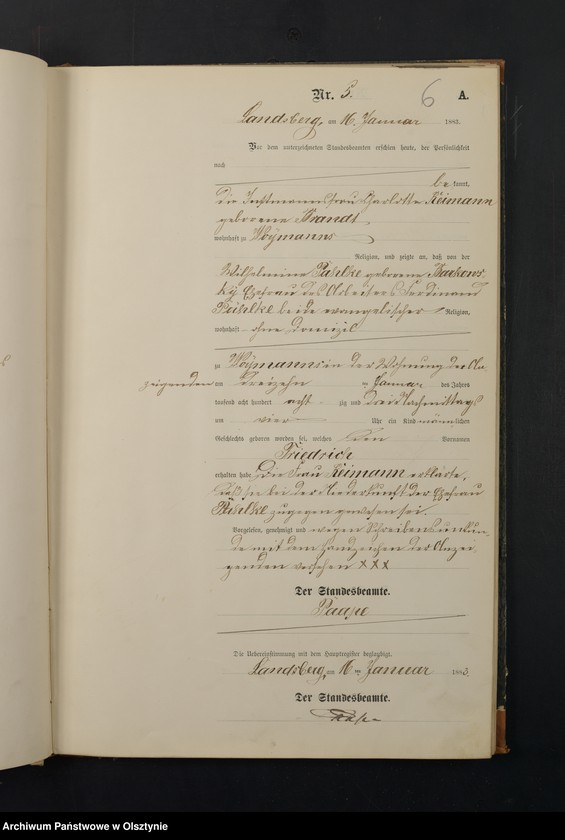 Nr. 5. 6 A.
Landsberg, am 16. Januar 1883.
Vor dem unterzeichneten Standesbeamten erschien heute, der Persönlichkeit
nach
be kannt,
die Instmannsfrau Charlotte Reimann
geborene Brandt
wohnhaft zu Woymanns
Religion, und zeigte an, daß von der
Wilhelmine geborene
Ehefrau des Arbeiters Ferdinand
beide evangelischer Religion,
wohnhaft ohne Domizil
zu Woymanns in der Wohnung der An
zeigenden am dreizehn ten Januar des Jahres
tausend acht hundert acht zig und drei Nachmittags
um vier Uhr ein Kind männlichen
Geschlechts geboren worden sei, welches den Vornamen
Friedrich
erhalten habe. Die Frau Reimann erklärte,
daß sie bei der Niederkunft der Ehefrau
zugegen gewesen sei.
Vorgelesen, genehmigt und wegen Schreibensunkun-
de mit dem Handzeichen der Anzei-
genden versehen XXX
Der Standesbeamte.
Die Uebereinstimmung mit dem Hauptregister beglaubigt.
Landsberg, am 16 ten Januar 1883.
Der Standesbeamte.
Archiwum Państwowe w Olsztynie